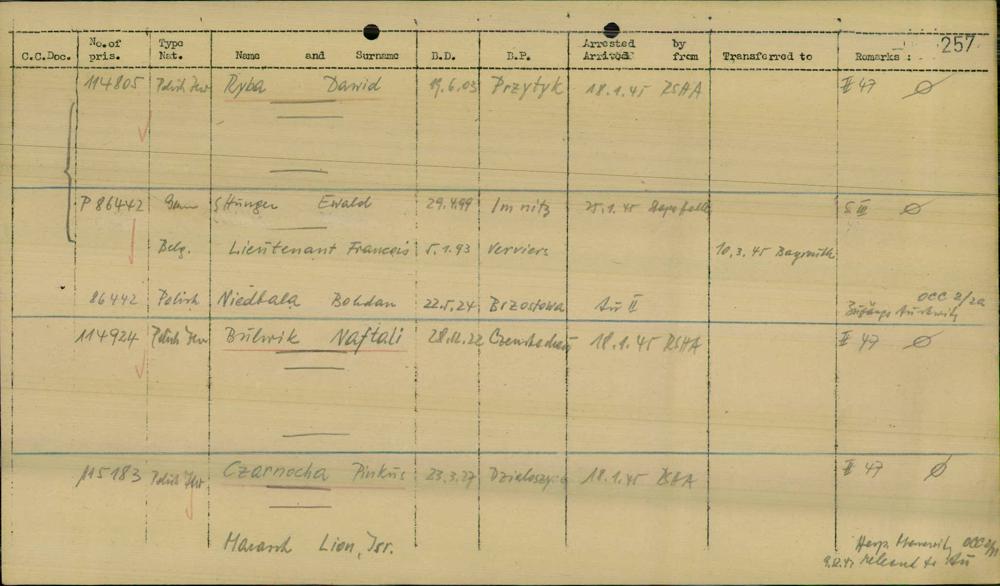 257
C.C.Doc. No. of pris. Type Nat. Name and Surname B.D. B.P. Arrested Arrived by from Transferred to Remarks :
114805 Polish Jew Ryba Dawid 19.6.03 Przytyk 18.1.45 RSHA II 47 Ø
P 86442 Ewald 29.4.99 Imnitz 25.1.45 Ø
Belg. Lieutenant Francois 5.1.93 Verviers 10.3.45 Bayreuth
OCC 2/2a
86442 Polish Niedbala Bohdan 22.5.24 Brzostowa Au II Zugänge Auschwitz
114924 Polish Jew Bulwik Naftali 28.12.22 18.1.45 RSHA II 47 Ø
115183 Polish Jew Czarnocha Pinkus 23.3.27 18.1.45 RSHA II 47 Ø
Lion, Isr. Monowitz
to Au